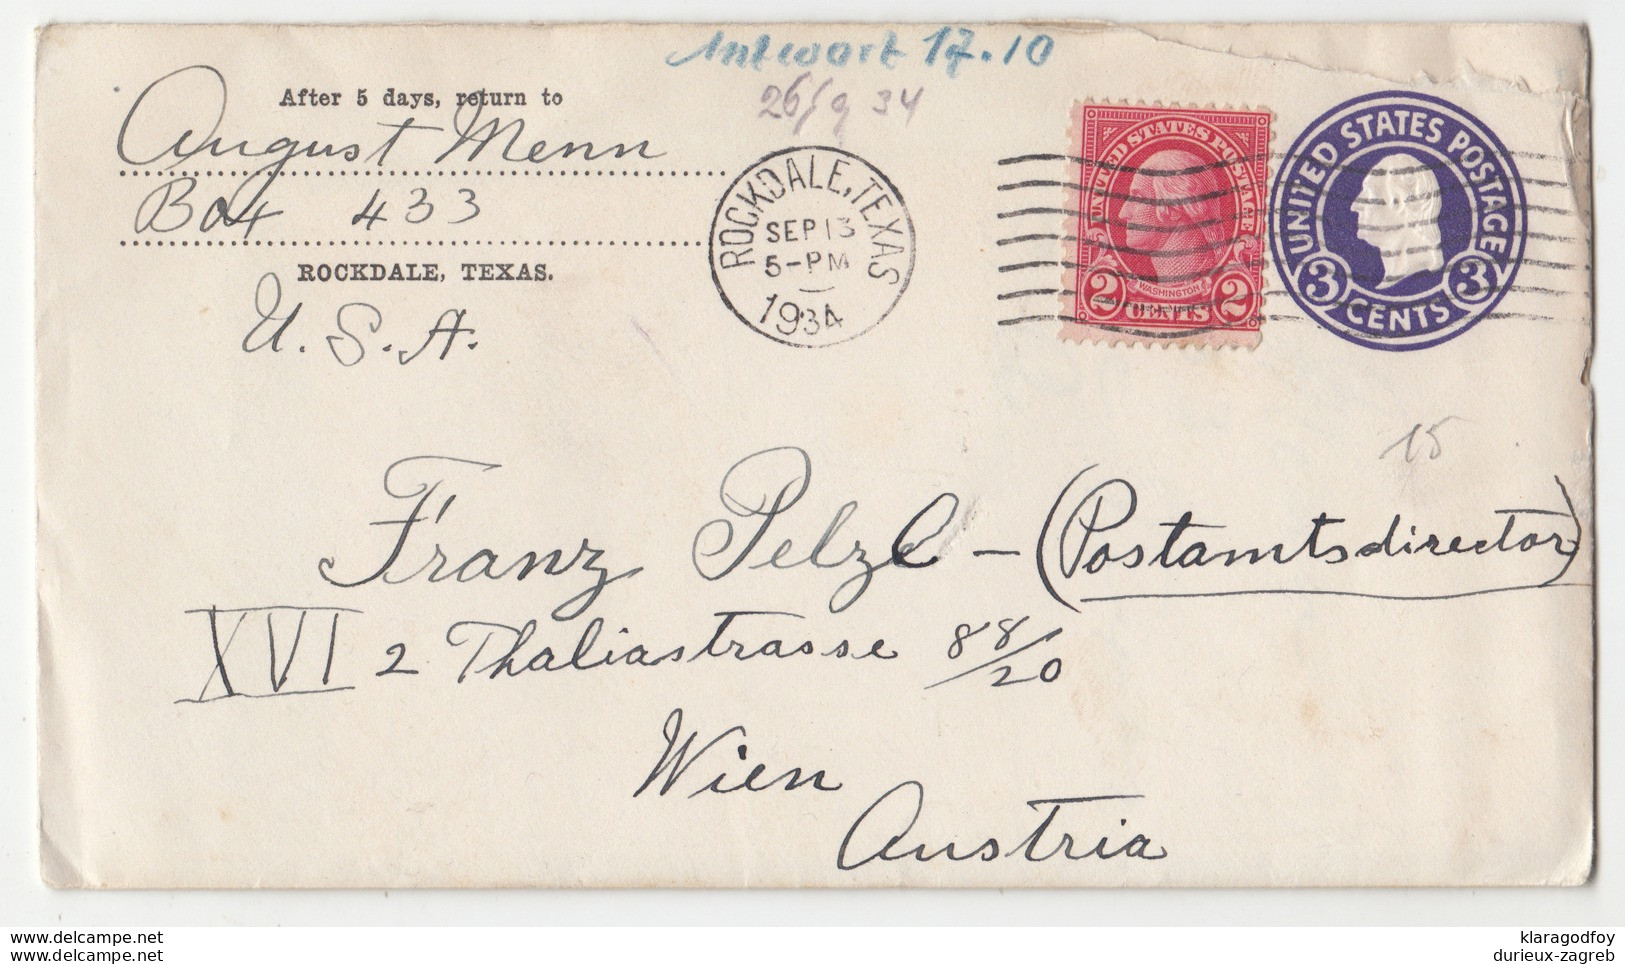 Antwort 17.10
26/9 34
After 5 days, return to
August Menn
Box 433
ROCKDALE, TEXAS.
U.S.A.
ROCKDALE, TEXAS
SEP 13
5-PM
1934
UNITED STATES POSTAGE
WASHINGTON
2 CENTS 2
UNITED STATES POSTAGE
3 CENTS 3
15
Franz Pelzl - (Postamtsdirector)
XVI 2 Thaliastrasse 88/20
Wien
Austria
klaragodfoy
durieux-zagreb
klaragodfoy
durieux-zagreb
www.delcampe.net